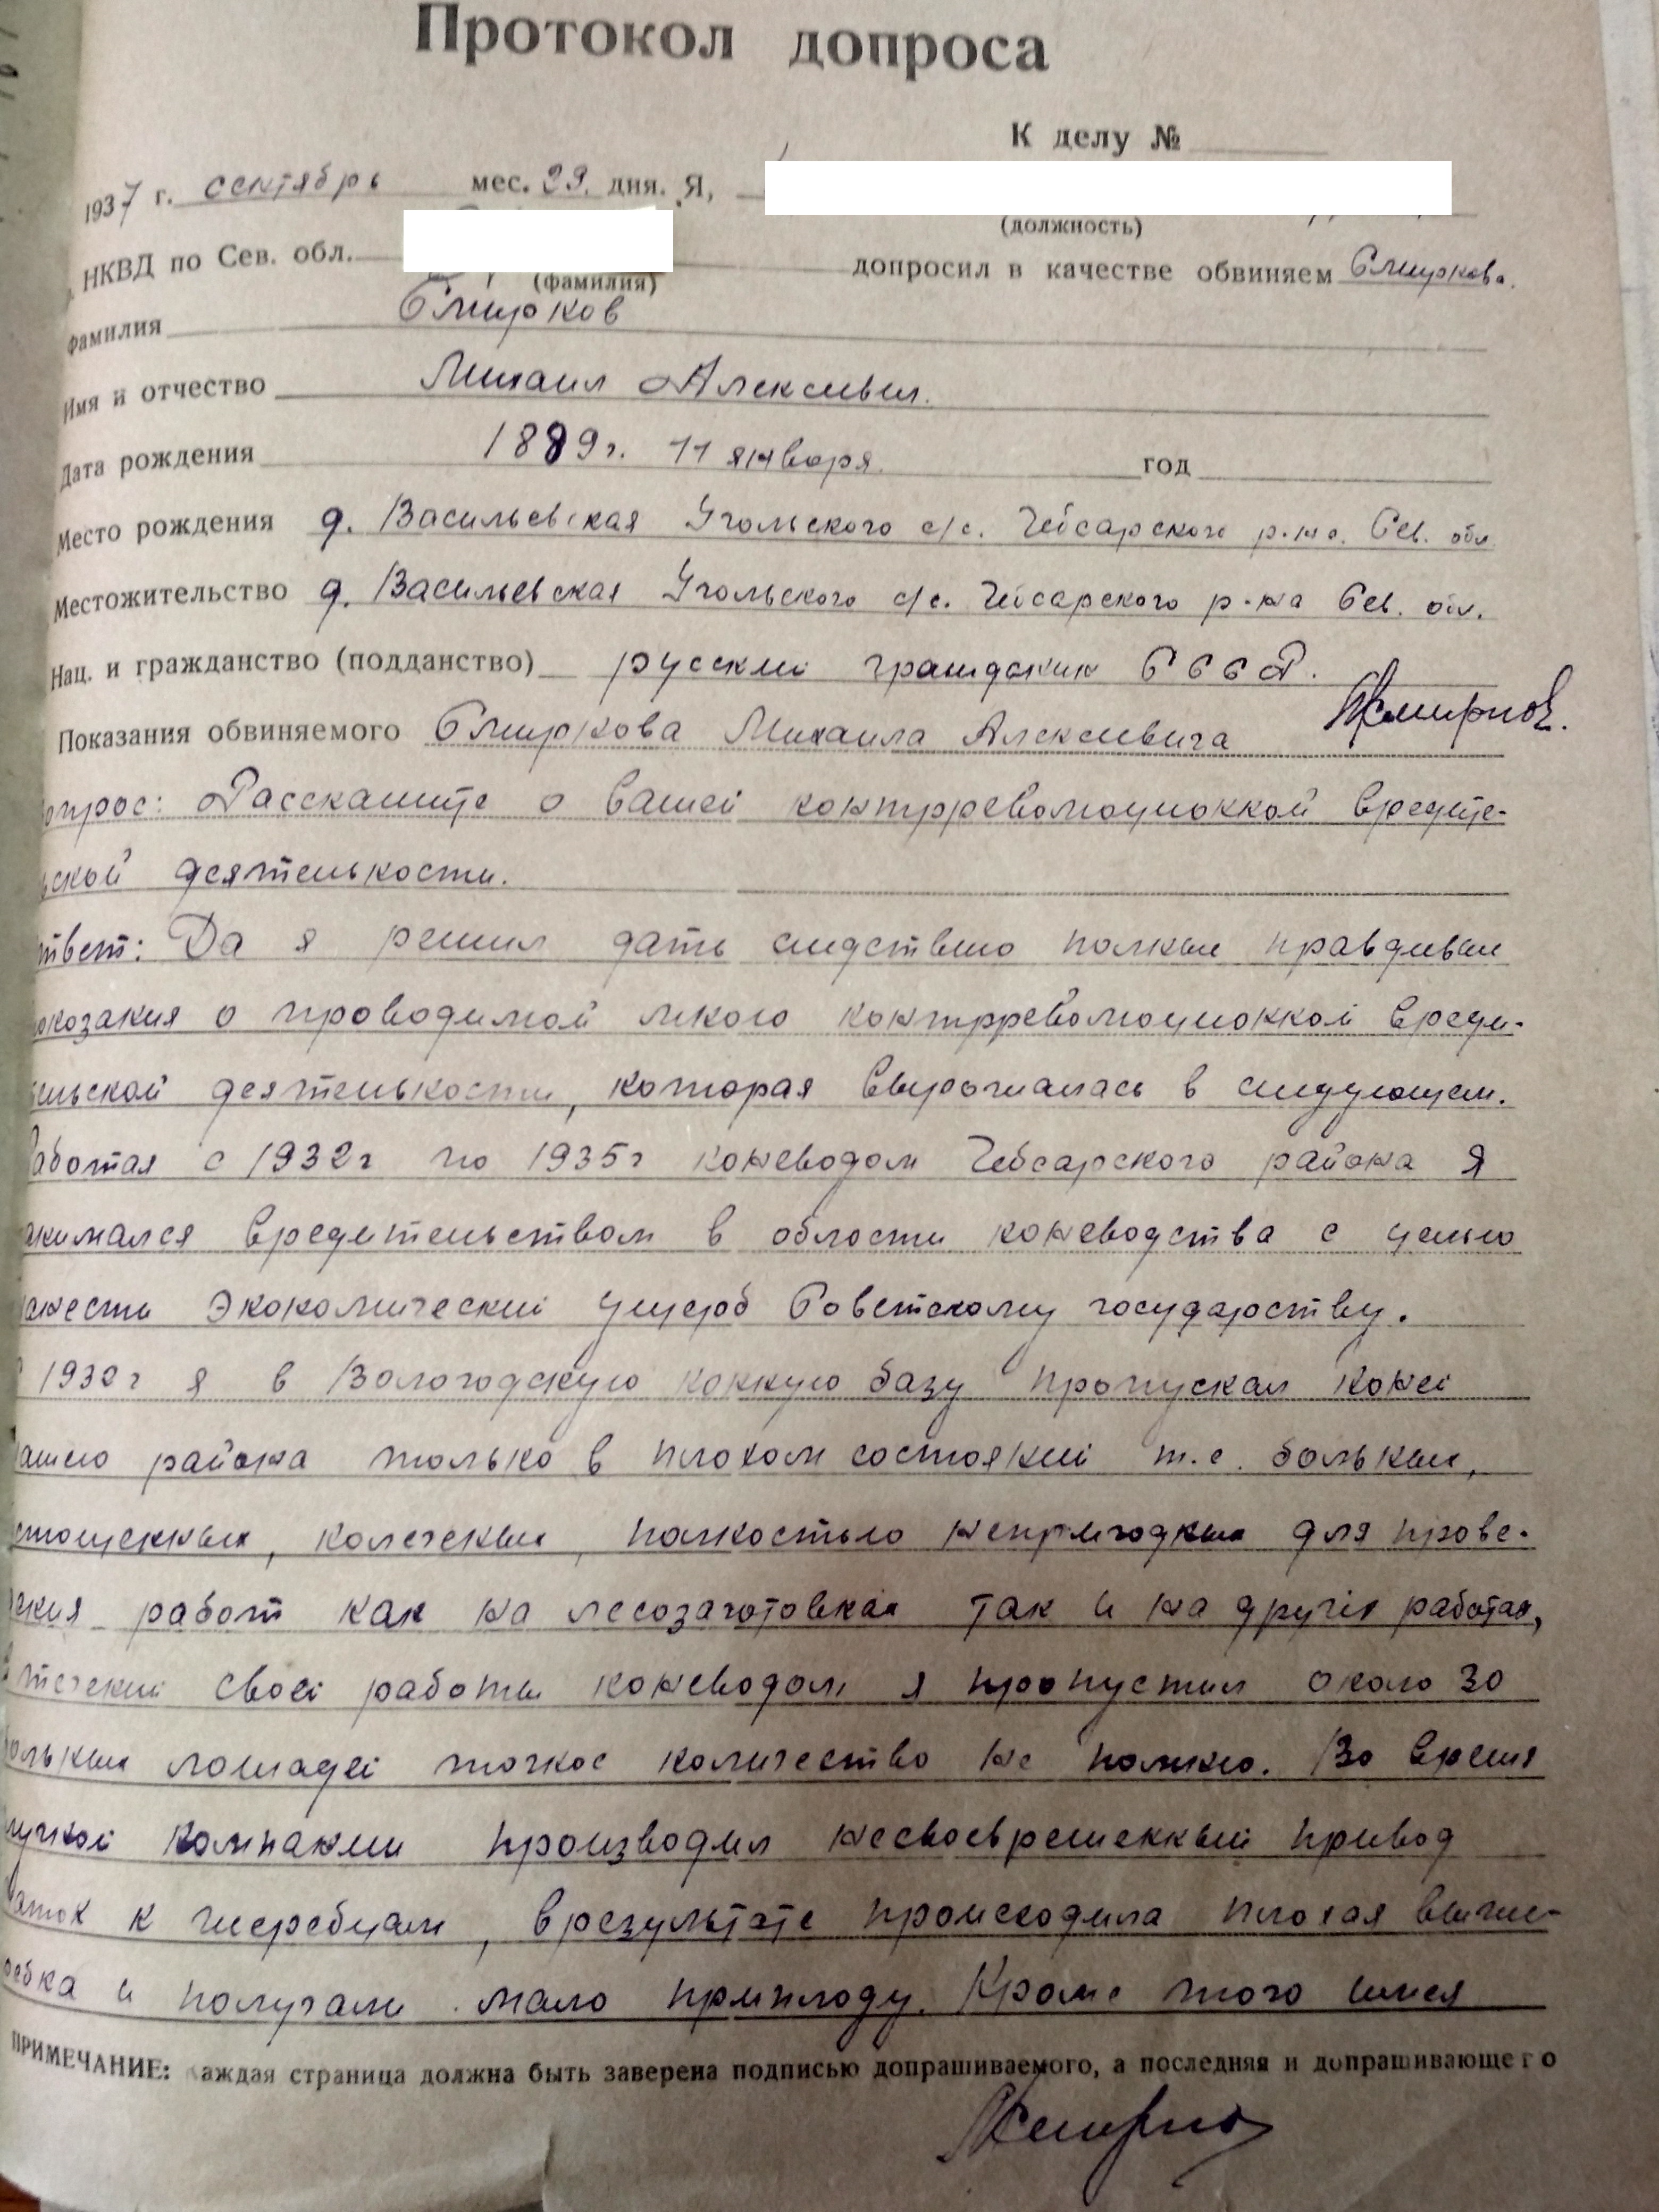 Протокол допроса
К делу №
1937 г. сентябрь мес. 29. дня. Я,
(должность)
НКВД по Сев. обл. допросил в качестве обвиняем Смиркова.
(фамилия)
фамилия Смирнов
Имя и отчество Михаил Алексеевич.
Дата рождения 1889 г. 11 января год
Место рождения д. Васильевская Угольского с/с. Чебсарского р-на. Сев. обл
Местожительство д. Васильевская Угольского с/с. Чебсарского р-на Сев. обл.
Нац. и гражданство (подданство) русский гражданин СССР.
Показания обвиняемого Смирнова Михаила Алексеевича МСмирнов.
опрос: Расскажите о вашей контрреволюционной вредите-
ьской деятельности.
твет: Да я решил дать следствию полные правдивые
оказания о проводимой мною контрреволюционной вреди-
ельской деятельности, которая выражалась в следующем.
аботая с 1932г по 1935г коневодом Чебсарского района я
анимался вредительством в области коневодства с целью
анести экономический ущерб Советскому государству.
1932г я в Вологодскую конную базу пропускал коней
ашего района только в плохом состоянии т.е. больных,
стощенных, калеченых, полностью непригодных для прове-
ения работ как на лесозаготовках так и на других работах,
течении своей работы коневодом я пропустил около 30
ольных лошадей точное количество не помню. Во время
лучной компании производил несвоевременный привод
аток к жеребцам, в результате происходила плохая выже-
ребка и получали мало приплоду. Кроме того имея
ПРИМЕЧАНИЕ: каждая страница должна быть заверена подписью допрашиваемого, а последняя и допрашивающего
МСмирнов